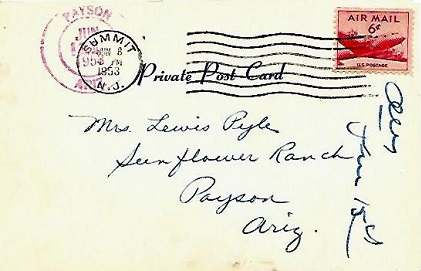 PAYSON
JUN
1953
ARIZ.
SUMMIT
JUN 8
PM
1953
N.J.
AIR MAIL
6¢
U.S. POSTAGE
Private Post Card
Mrs. Lewis Pyle
Sunflower Ranch
Payson
Ariz.